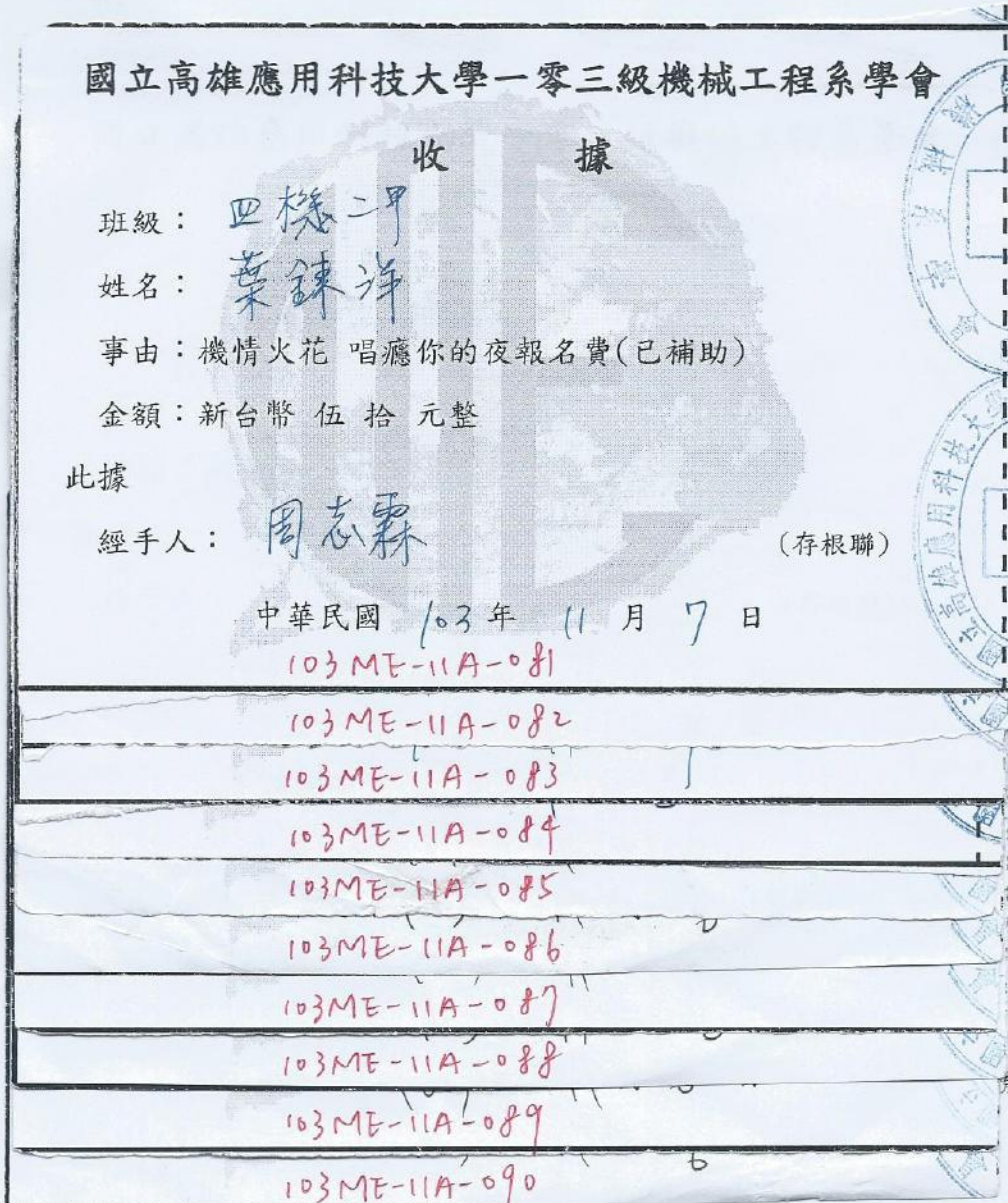 國立高雄應用科技大學一零三級機械工程系學會
收 據
班級：四機二甲
姓名：葉錬洋
事由：機情火花 唱癮你的夜報名費(已補助)
金額：新台幣 伍 拾 元整
此據
經手人：周志霖
(存根聯)
中華民國 103 年 11 月 7 日
103ME-11A-081
103ME-11A-082
103ME-11A-083
103ME-11A-084
103ME-11A-085
103ME-11A-086
103ME-11A-087
103ME-11A-088
103ME-11A-089
103ME-11A-090
國立高雄應用科技大學